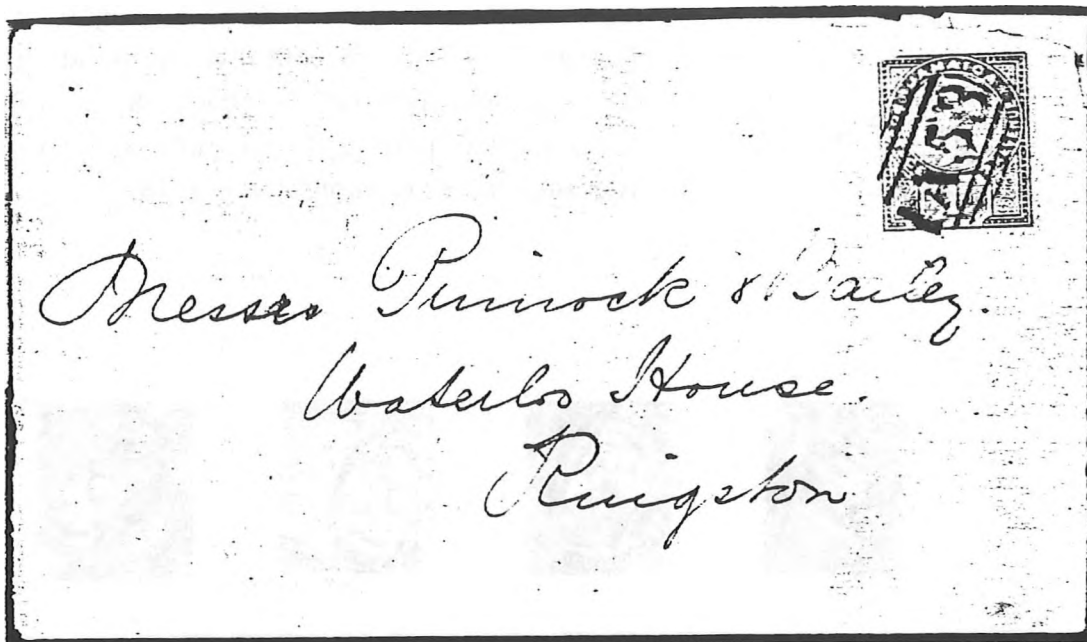 A53
Messrs Pinnock & Bailey.
Waterloo House.
Kingston